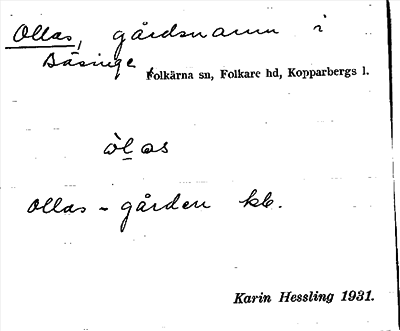 Ollas, gårdsnamn i
Bäsinge,
Folkärna sn, Folkare hd, Kopparbergs l.
òlas
Ollas-gården kb.
Karin Hessling 1931.